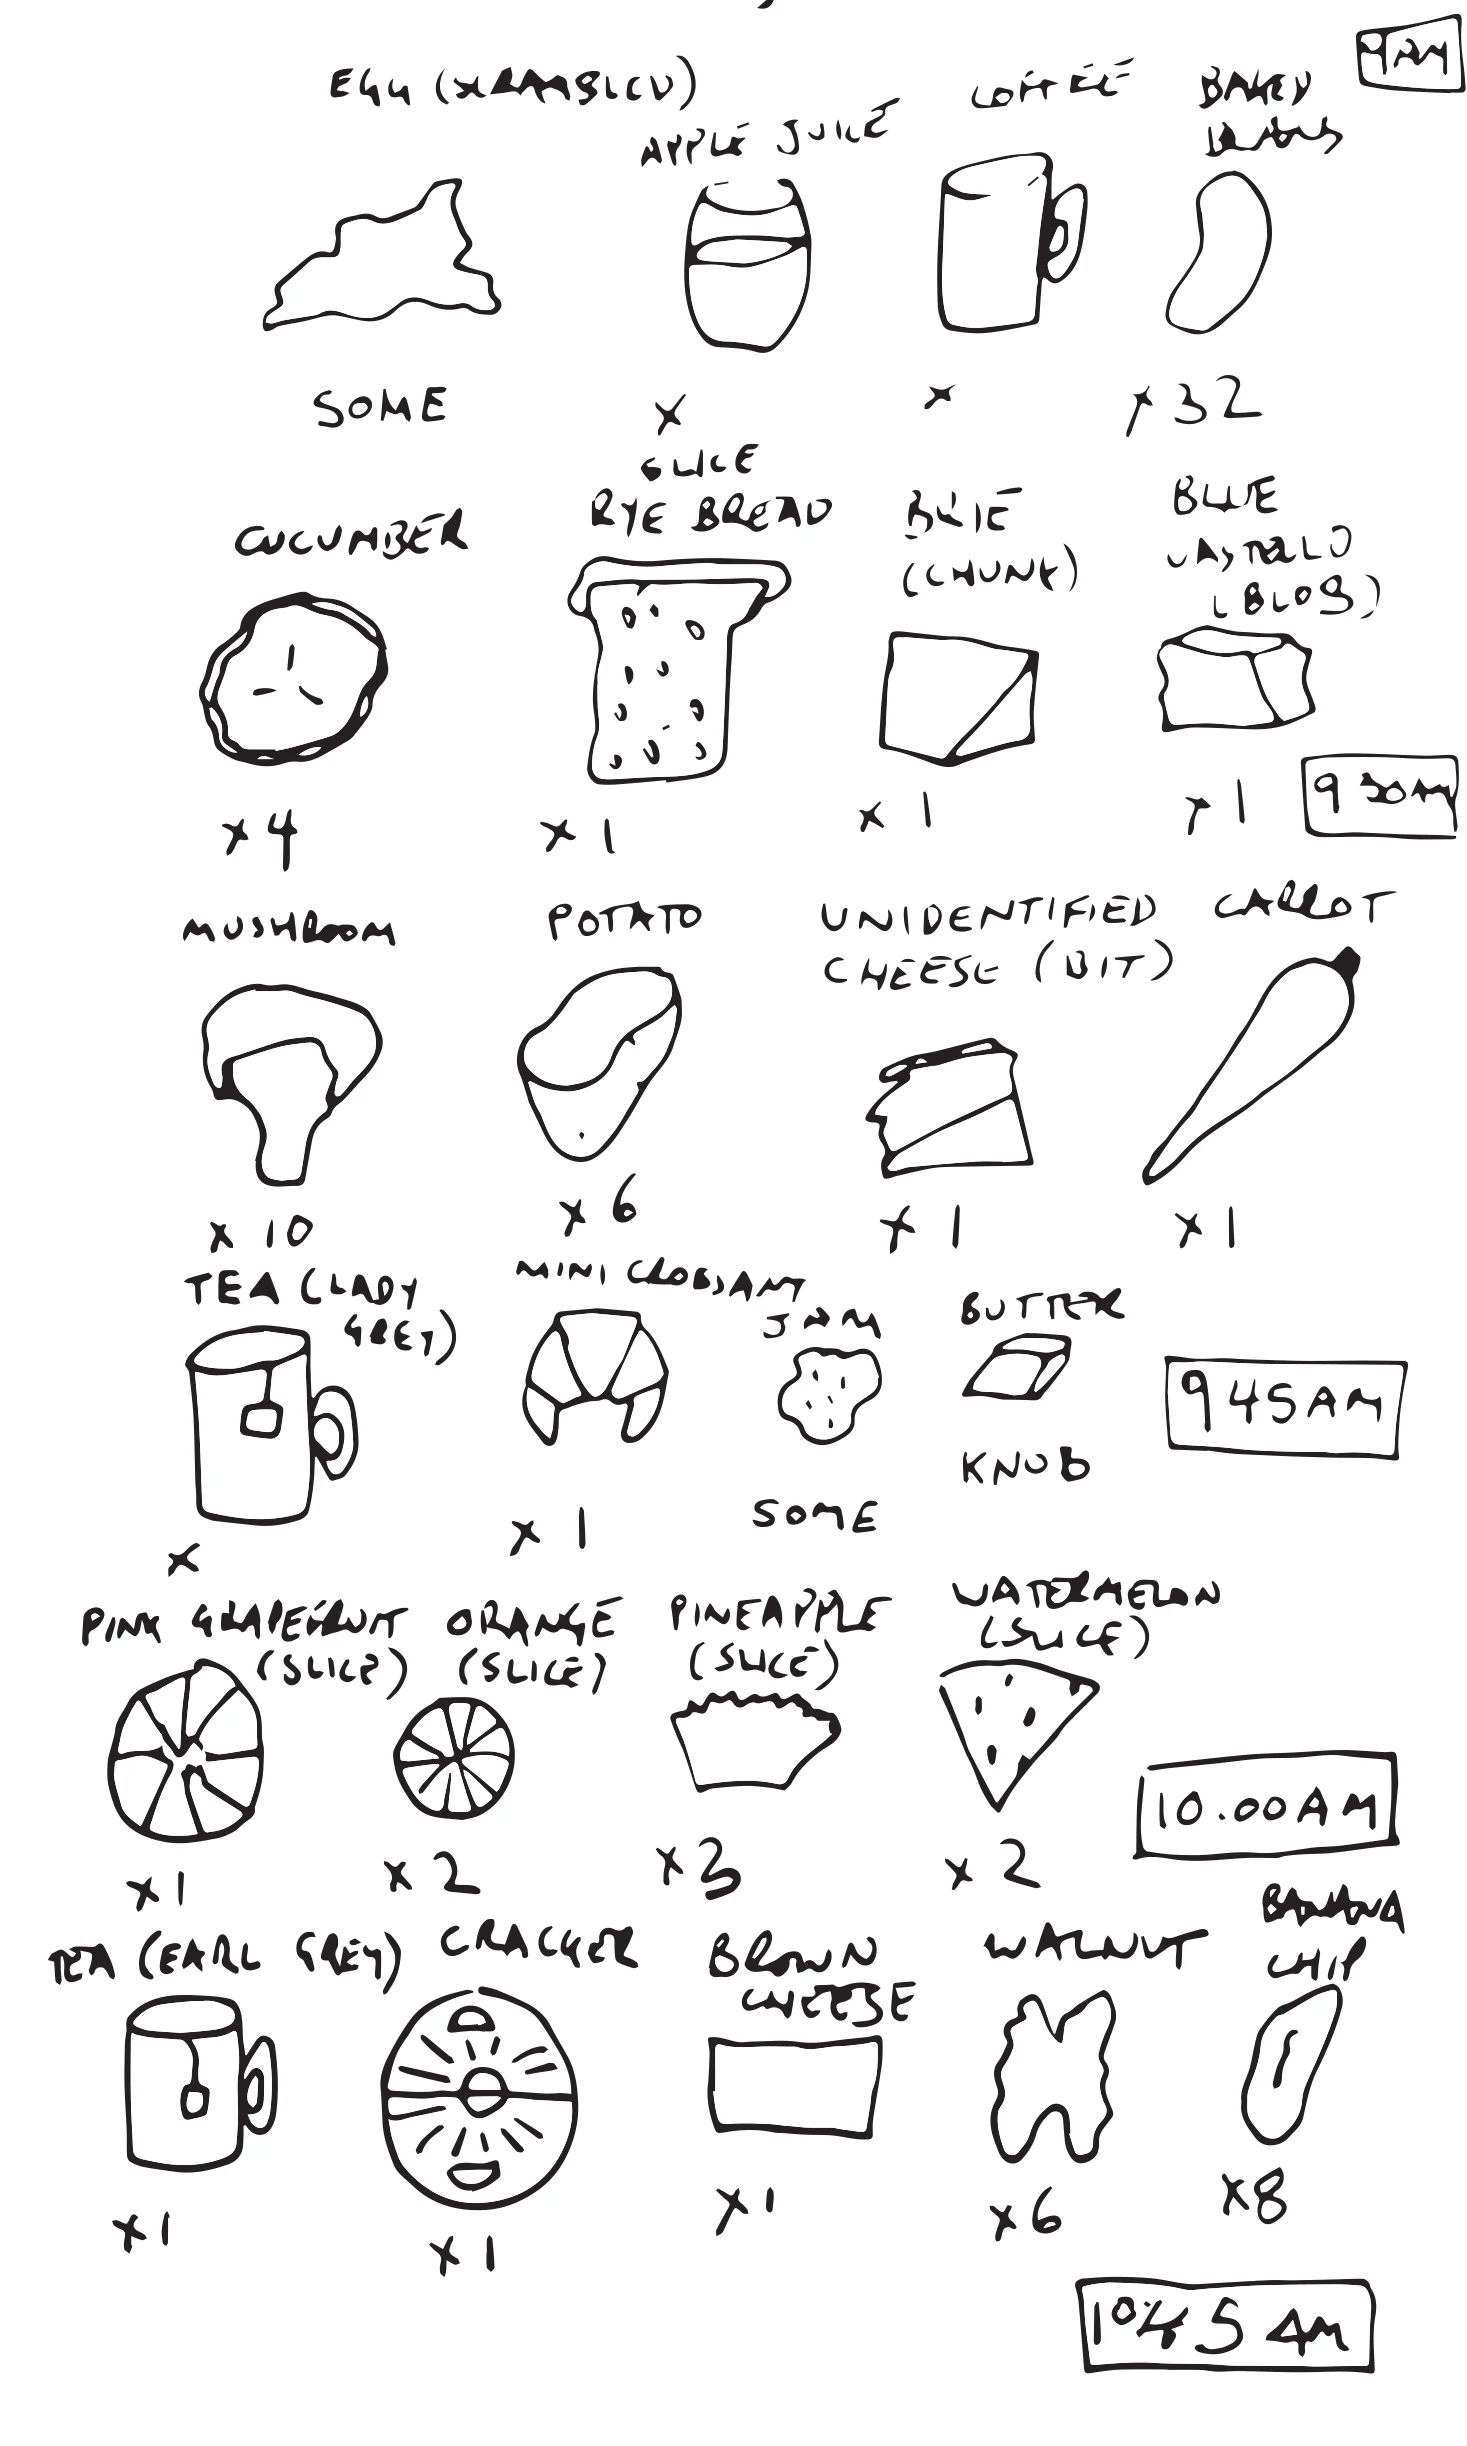 9AM
EGG (SCRAMBLED)
APPLE JUICE
COFFEE
BAKED
BEANS
SOME
x
x
x 32
CUCUMBER
SLICE
RYE BREAD
BRIE
(CHUNK)
BLUE
CASTELLO
(BLOB)
x 4
x 1
x 1
x 1
930AM
MUSHROOM
POTATO
UNIDENTIFIED
CHEESE (BIT)
CARROT
x 10
x 6
x 1
x 1
TEA (LADY
GREY)
MINI CROISSANT
JAM
BUTTER
945AM
x
x 1
SOME
KNOB
PINK GRAPEFRUIT
(SLICE)
ORANGE
(SLICE)
PINEAPPLE
(SLICE)
WATERMELON
(SLICE)
10.00AM
x 1
x 2
x 3
x 2
TEA (EARL GREY)
CRACKER
BROWN
CHEESE
WALNUT
BANANA
CHIP
x 1
x 1
x 1
x 6
x 8
1045 AM